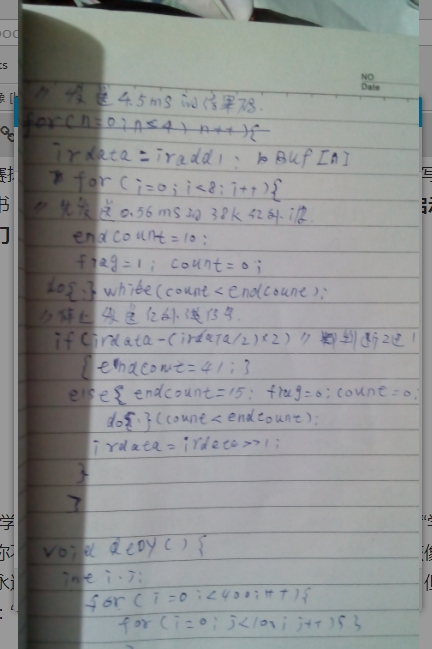 NO
Date
// 发送4.5ms的结果码.
for(n=0;n≤4;n++){
irdata=iradd1; Buf[n]
for(i=0;i<8;i++){
// 先发送0.56ms的38K红外波
endcount=10;
frag=1; count=0;
do{;}while(count<endcount);
// 停止发送红外信号
if(irdata-(irdata/2)*2) //
{endcont=41;}
else{endcount=15; frag=0; count=0;
do{;}(count<endcount);
irdata=irdata>>1;
}
}
void
int i,j;
for(i=0;i<400;i++){
for(i=0;j<10;j++){}